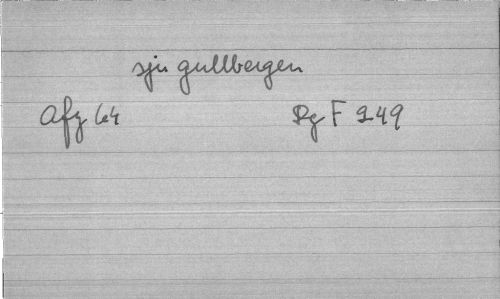 sju gullbergen
Afz 64 Rg F 249